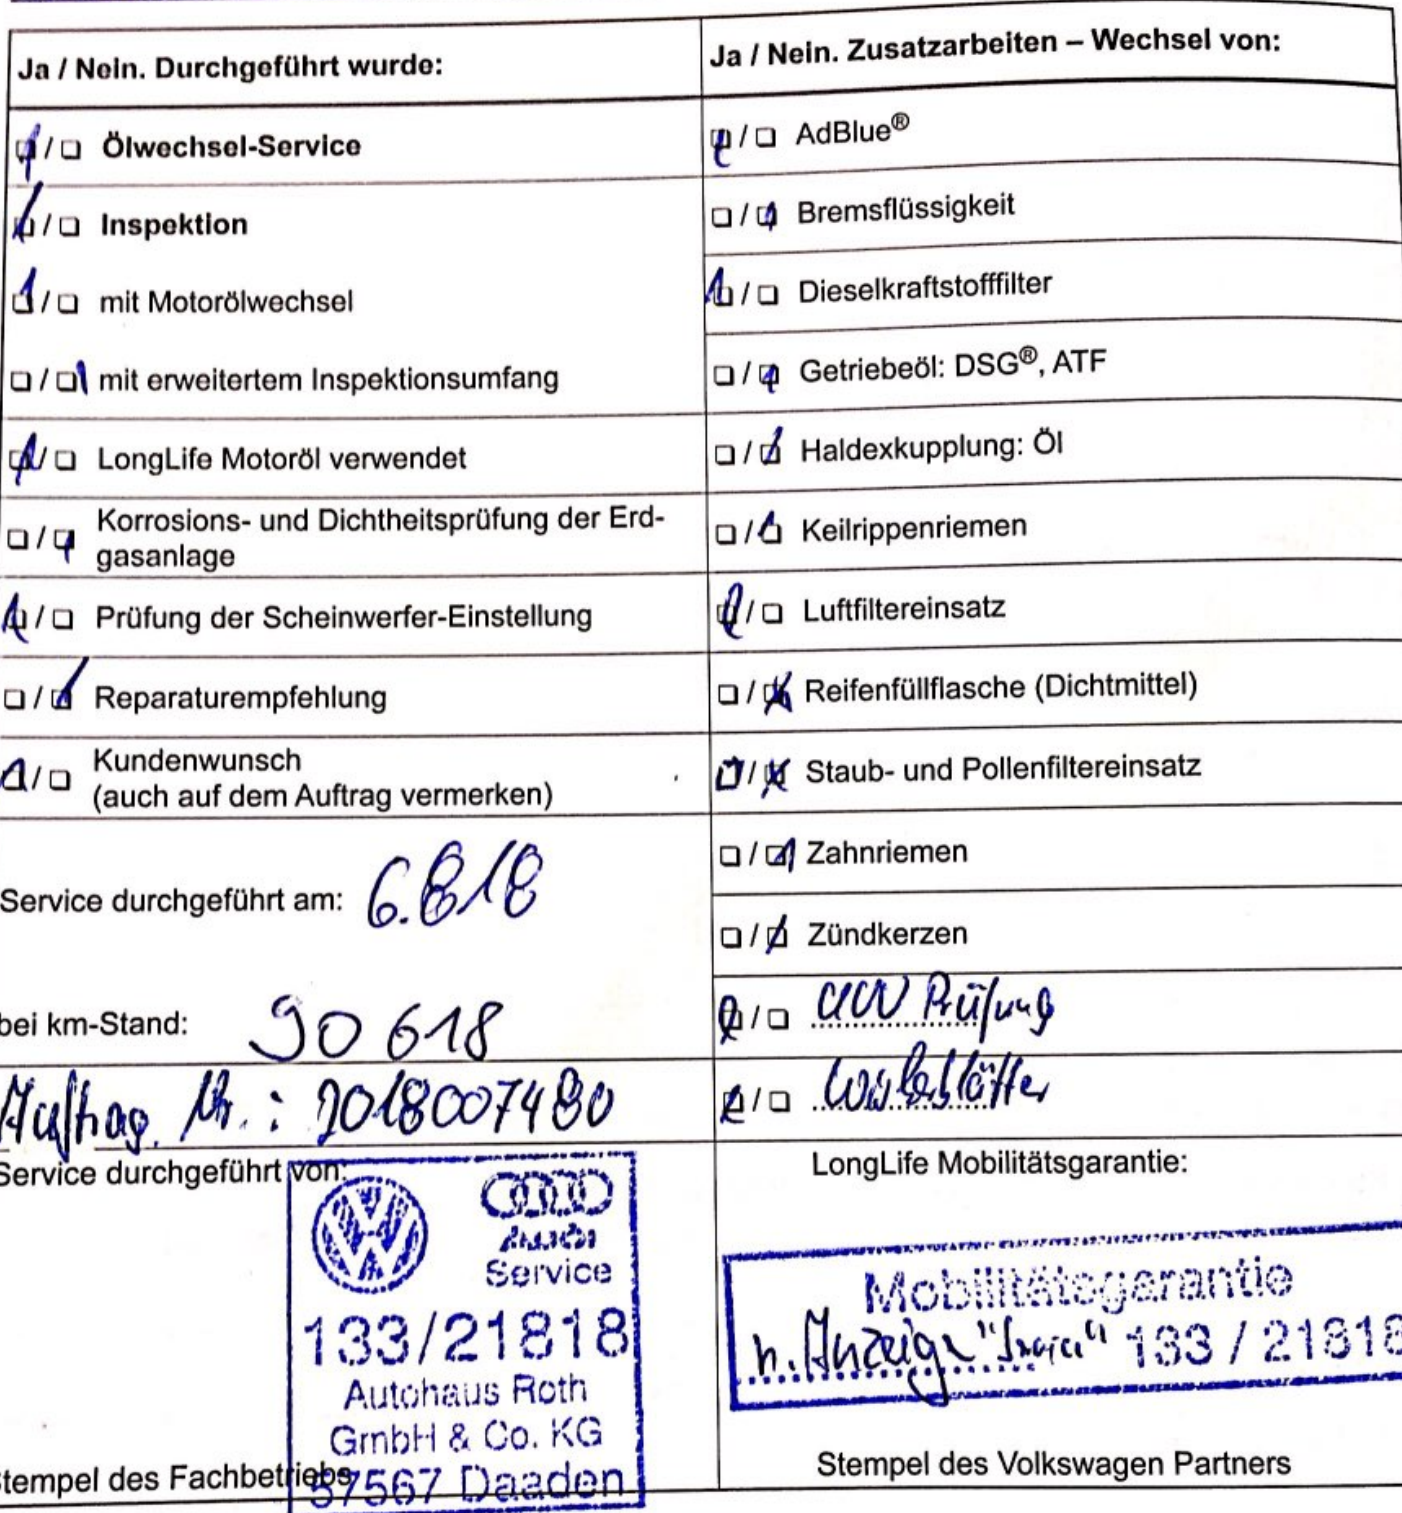 Ja / Nein. Durchgeführt wurde:
☑ / ☐ Ölwechsel-Service
☑ / ☐ Inspektion
☑ / ☐ mit Motorölwechsel
☐ / ☑ mit erweitertem Inspektionsumfang
☑ / ☐ LongLife Motoröl verwendet
☐ / ☑ Korrosions- und Dichtheitsprüfung der Erd-
gasanlage
☑ / ☐ Prüfung der Scheinwerfer-Einstellung
☐ / ☑ Reparaturempfehlung
☑ / ☐ Kundenwunsch
(auch auf dem Auftrag vermerken)
Service durchgeführt am: 6.8.18
bei km-Stand: 90 618
Auftrag. Nr.: 2018007480
Service durchgeführt von:
Audi
Service
133/21818
Autohaus Roth
GmbH & Co. KG
57567 Daaden
Stempel des Fachbetriebs
Ja / Nein. Zusatzarbeiten – Wechsel von:
☑ / ☐ AdBlue®
☐ / ☑ Bremsflüssigkeit
☑ / ☐ Dieselkraftstofffilter
☐ / ☑ Getriebeöl: DSG®, ATF
☐ / ☑ Haldexkupplung: Öl
☐ / ☑ Keilrippenriemen
☑ / ☐ Luftfiltereinsatz
☐ / ☑ Reifenfüllflasche (Dichtmittel)
☑ / ☑ Staub- und Pollenfiltereinsatz
☐ / ☑ Zahnriemen
☐ / ☑ Zündkerzen
☑ / ☐ UUV Prüfung
☑ / ☐
LongLife Mobilitätsgarantie:
Mobilitätsgarantie
n. Anzeige 133 / 21818
Stempel des Volkswagen Partners